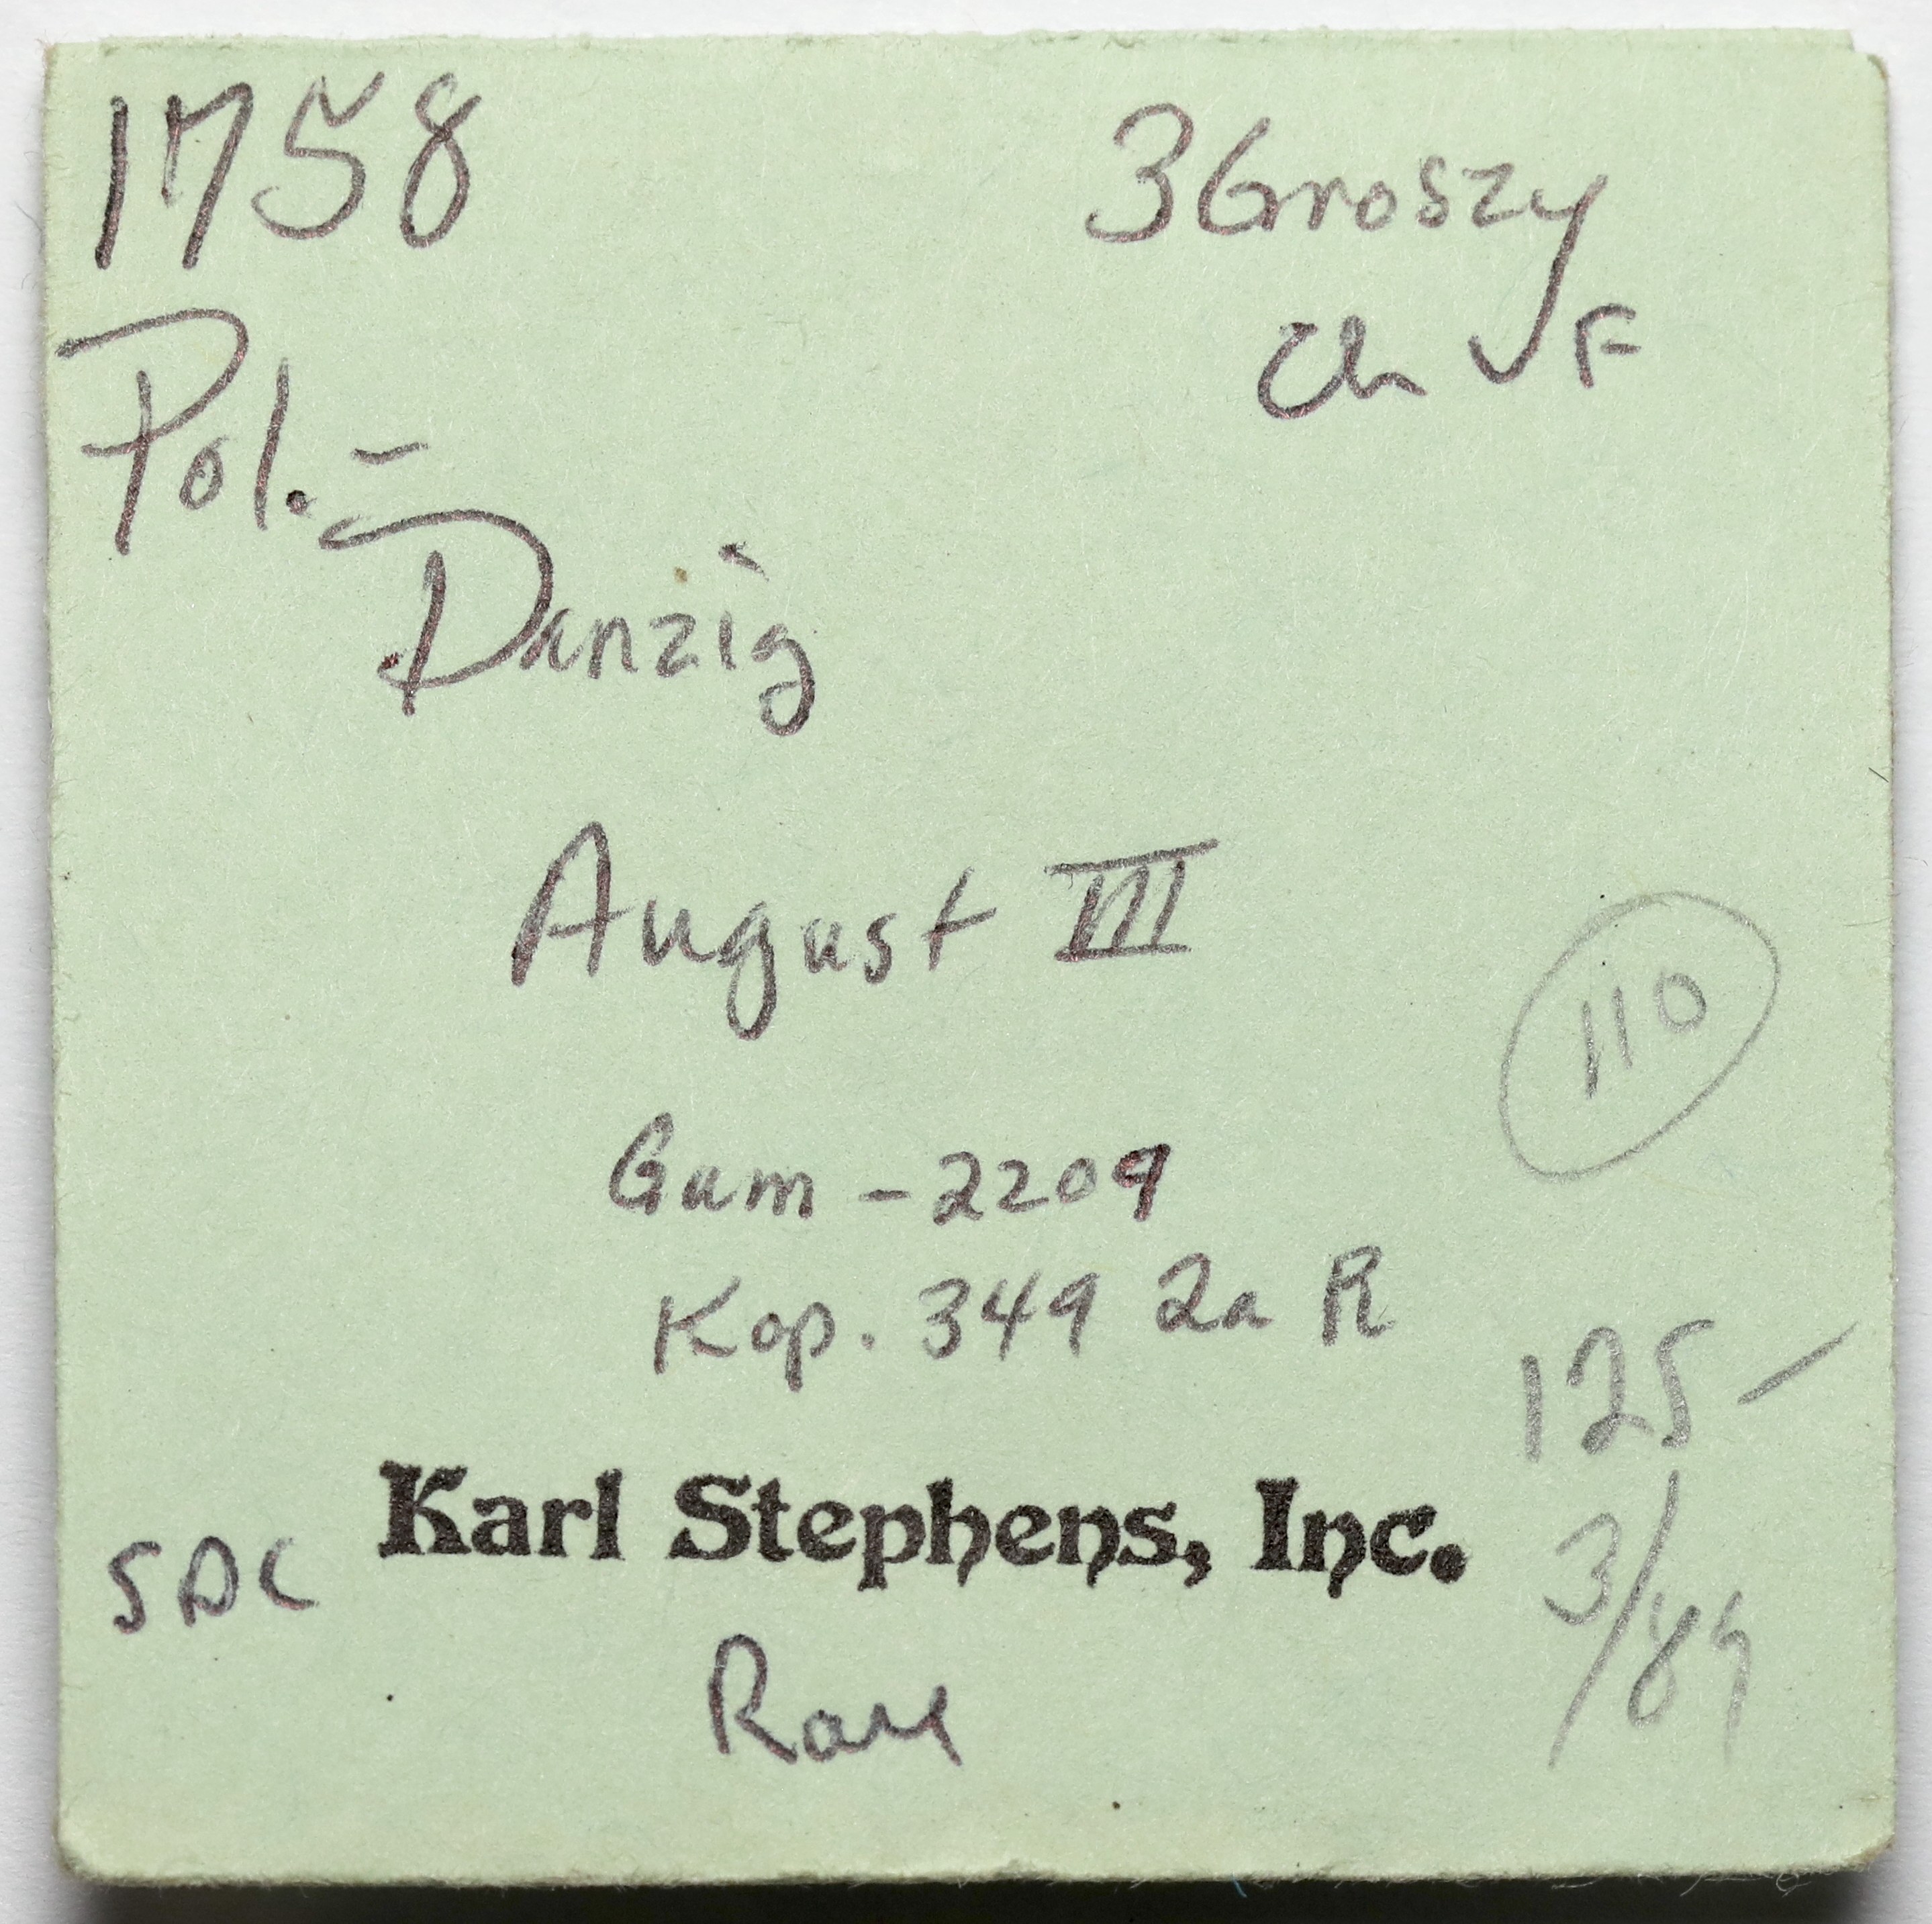 1758
3Groszy
Ch VF
Pol.-
Danzig
August III
110
Gum - 2209
Kop. 349 2a R
125-
Karl Stephens, Inc.
3/89
SDC
Rare